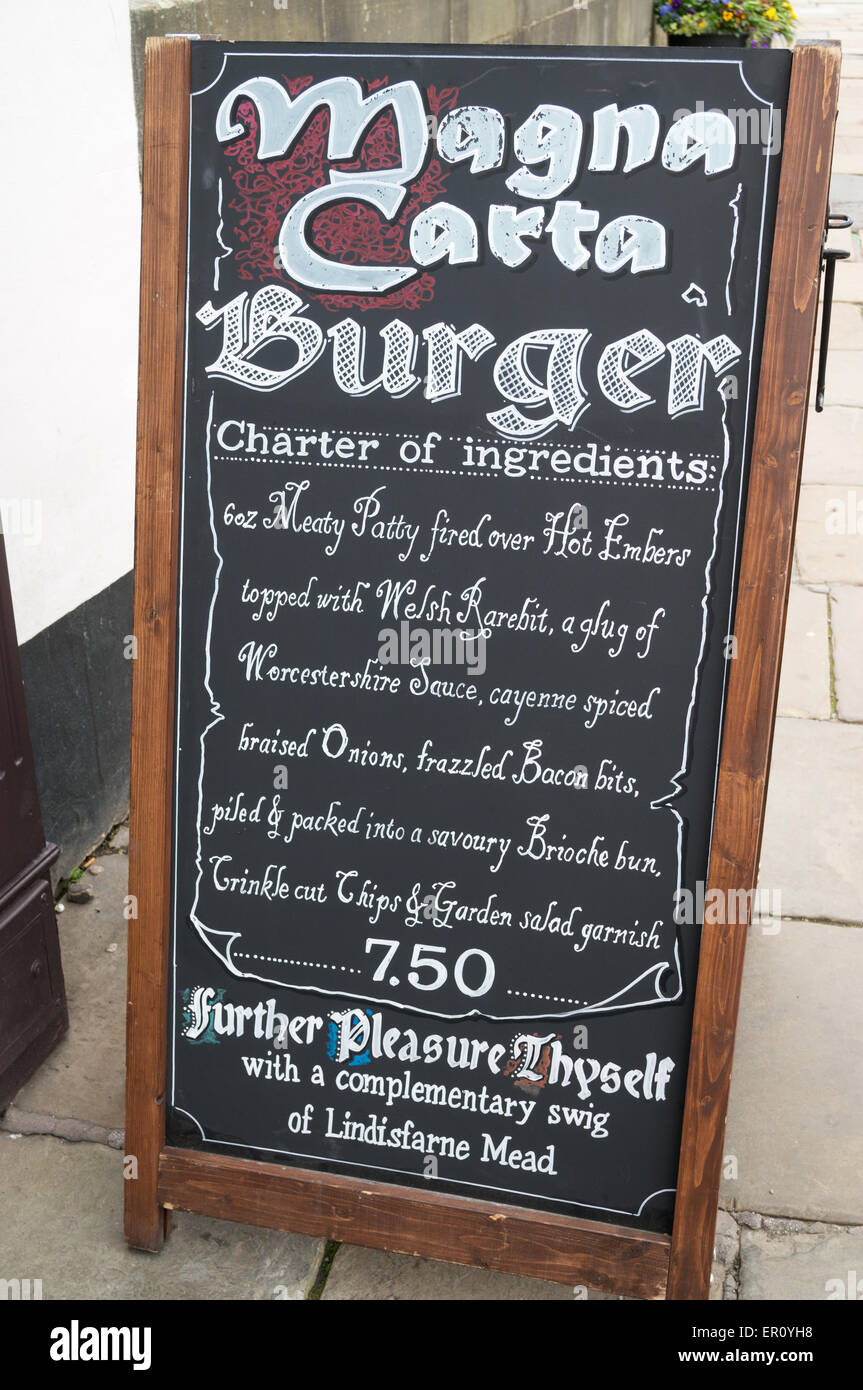 Magna
Carta
Burger
Charter of ingredients:
6oz Meaty Patty fired over Hot Embers
topped with Welsh Rarebit, a glug of
Worcestershire Sauce, cayenne spiced
braised Onions, frazzled Bacon bits,
piled & packed into a savoury Brioche bun,
Crinkle cut Chips & Garden salad garnish
7.50
Further Pleasure Thyself
with a complementary swig
of Lindisfarne Mead
alamy stock photo
ER0YH8
www.alamy.com